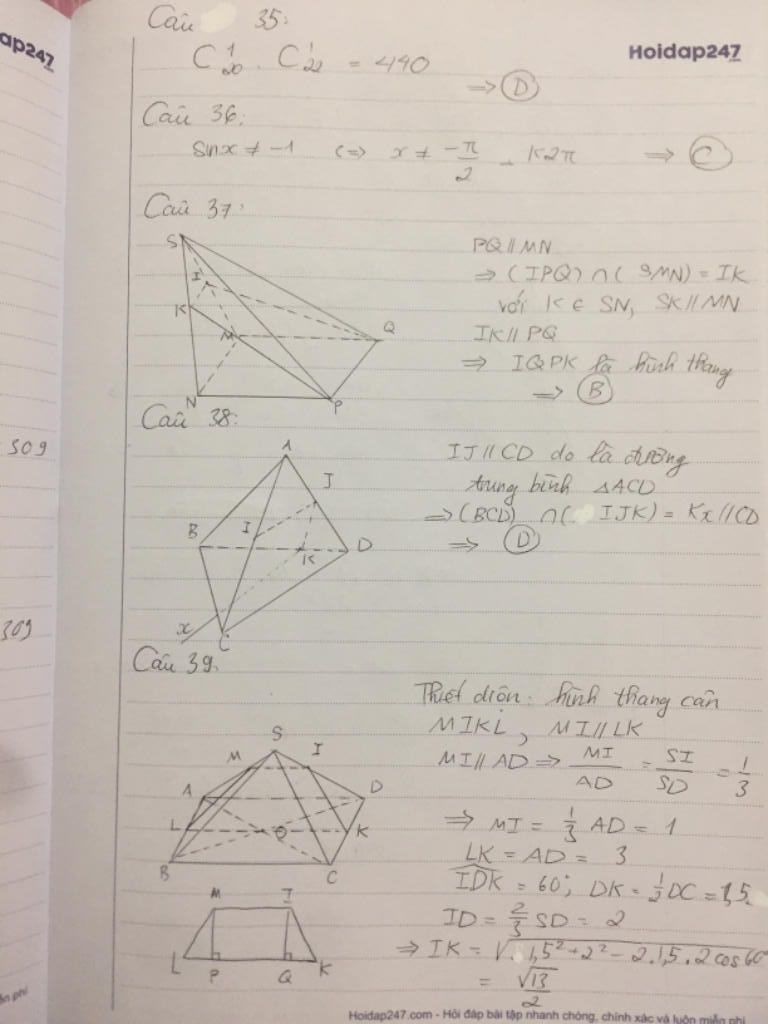 ap247
Hoidap247
Câu 35:
C¹₂₀ . C¹₂₂ = 440
⇒ (D)
Câu 36:
sinx ≠ -1 <=> x ≠ -π/2 - k2π ⇒ (C)
Câu 37:
S
I
K
M
Q
N
P
PQ // MN
⇒ (IPQ) ∩ (SMN) = IK
với K ∈ SN, SK // MN
IK // PQ
⇒ IQPK là hình thang
⇒ (B)
Câu 38:
A
J
B
I
D
K
x
C
IJ // CD do là đường
trung bình △ACD
⇒ (BCD) ∩ (IJK) = Kx // CD
⇒ (D)
309
309
Câu 39.
S
M
I
A
D
L
O
K
B
C
M
I
L
P
Q
K
Thiết diện: hình thang cân
MIKL, MI // LK
MI // AD ⇒ MI/AD = SI/SD = 1/3
⇒ MI = 1/3 AD = 1
LK = AD = 3
IDK = 60°; DK = 1/2 DC = 1,5
ID = 2/3 SD = 2
⇒ IK = √1,5² + 2² - 2.1,5.2 cos60
= √13/2
Hoidap247.com - Hỏi đáp bài tập nhanh chóng, chính xác và luôn miễn phí
ễn phí